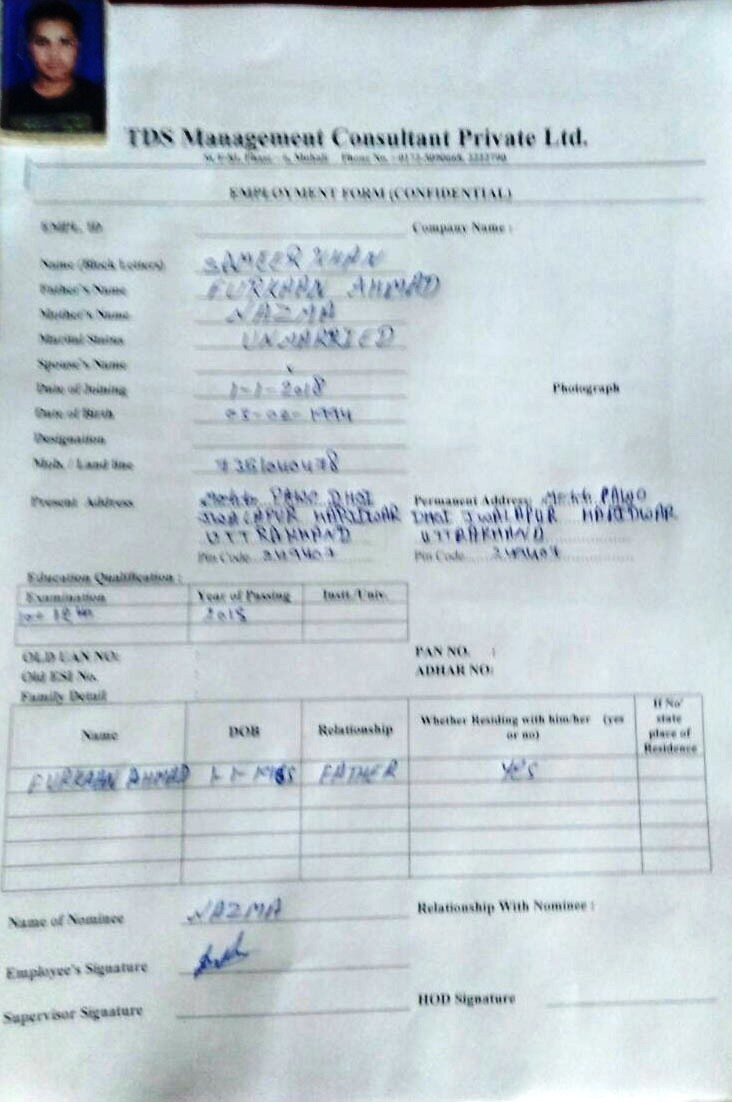 TDS Management Consultant Private Ltd.
Mohali Phone No. :
EMPLOYMENT FORM (CONFIDENTIAL)
EMPL. ID Company Name :
Name (Block Letters) SAMEER KHAN
Father's Name FURKAAN AHMAD
Mother's Name NAZMA
Marital Status UNMARRIED
Spouse's Name
Date of Joining 1-1-2018
Photograph
Date of Birth 1994
Designation
Mob. / Land line
Present Address Permanent Address:
JWALAPUR HARIDWAR JWALAPUR HARIDWAR
UTTRAKHAND UTTRAKHAND
Pin Code 249407 Pin Code 249407
Education Qualification :
Examination Year of Passing Instt./Univ.
12th 2018
OLD UAN NO: PAN NO. :
Old ESI No. : ADHAR NO:
Family Detail
Name DOB Relationship Whether Residing with him/her (yes or no) If No' state place of Residence
FURKAAN AHMAD FATHER YES
Name of Nominee NAZMA Relationship With Nominee :
Employee's Signature
Supervisor Signature HOD Signature